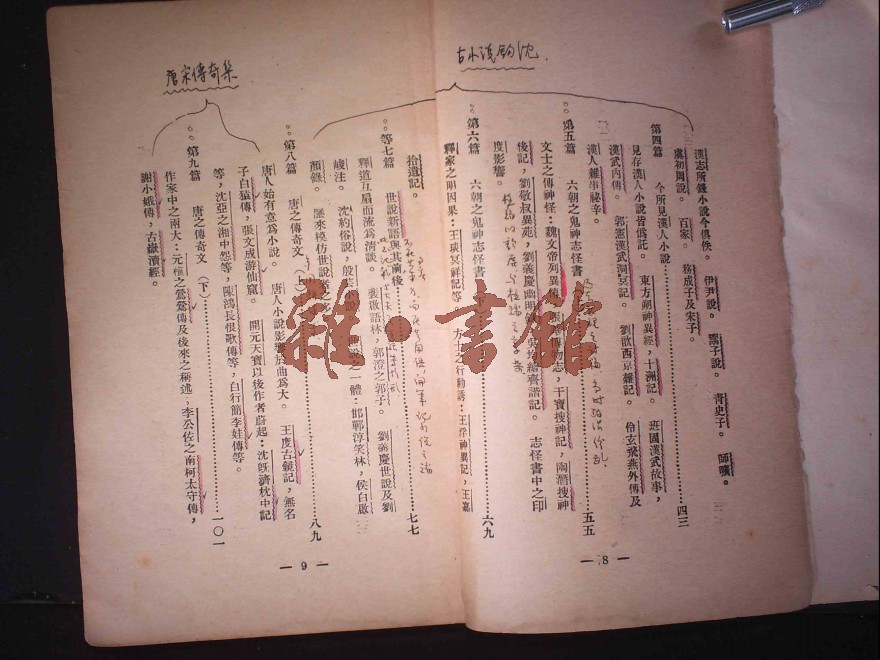 古小说钩沈
漢志所錄小說今俱佚。 伊尹說。 鬻子說。 青史子。 師曠。
虞初周說。 百家。 務成子及宋子。
第四篇 今所見漢人小說……四三
見存漢人小說皆僞託。 東方朔神異經，十洲記。 班固漢武故事，
漢武內傳。 郭憲漢武洞冥記。 劉歆西京雜記。 伶玄飛燕外傳及
漢人雜事秘辛。
第五篇 六朝之鬼神志怪書……五五
文士之傳神怪：魏文帝列異傳，張華博物志，干寶搜神記，陶潛搜神
後記，劉敬叔異苑，劉義慶幽明錄，吳均續齊諧記。 志怪書中之印
度影響。
第六篇 六朝之鬼神志怪書……六九
釋家之明因果：王琰冥祥記等 方士之行勸誘：王浮神異記，王嘉
— 8 —
拾遺記。
第七篇 世說新語與其前後……七七
釋道互扇而流爲清談。 裴啟語林，郭澄之郭子。 劉義慶世說及劉
峻注。 沈約俗說，殷芸 之一體：邯鄲淳笑林，侯白啟
顏錄。 歷來模仿世說者之
第八篇 唐之傳奇文（上）……八九
唐人始有意爲小說。 唐人小說影響於曲爲大。 王度古鏡記，無名
子白猿傳，張文成游仙窟。 開元天寶以後作者蔚起：沈旣濟枕中記
等，沈亞之湘中怨等，陳鴻長恨歌傳等，白行簡李娃傳等。
唐宋傳奇集
第九篇 唐之傳奇文（下）……一〇一
作家中之兩大：元稹之鶯鶯傳及後來之稱述，李公佐之南柯太守傳，
謝小娥傳，古嶽瀆經。
— 9 —
雜·書館